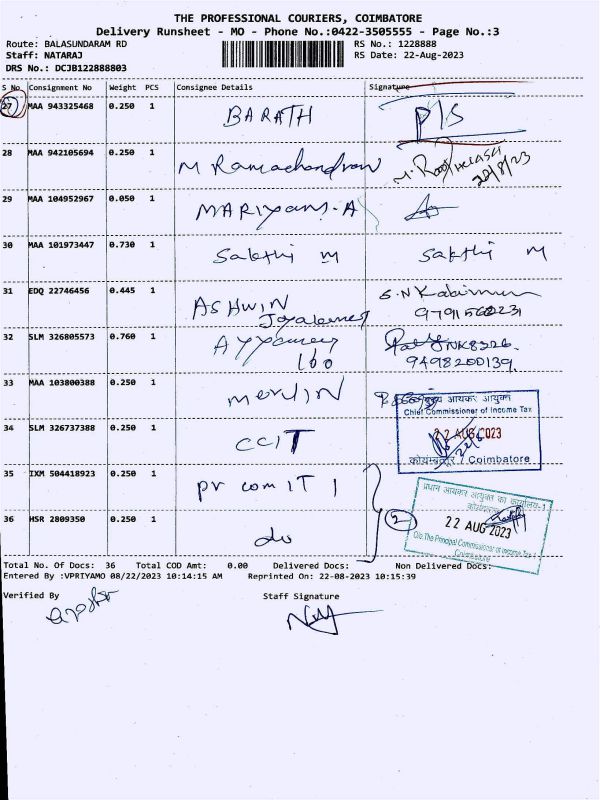 THE PROFESSIONAL COURIERS, COIMBATORE
Delivery Runsheet - MO - Phone No.:0422-3505555 - Page No.:3
Route: BALASUNDARAM RD RS No.: 1228888
Staff: NATARAJ RS Date: 22-Aug-2023
DRS No.: DCJB122888803
S No Consignment No Weight PCS Consignee Details Signature
27 MAA 943325468 0.250 1 BARATH P/S
28 MAA 942105694 0.250 1 M Ramachandran
22/8/23
29 MAA 104952967 0.050 1 MARIYAMS.A
30 MAA 101973447 0.730 1 Sakthi M Sakthi M
31 EDQ 22746456 0.445 1 ASHWIN
32 SLM 326805573 0.760 1
9498200139
33 MAA 103800388 0.250 1 merlin
आयकर आयुक्त
Chief Commissioner of Income Tax
34 SLM 326737388 0.250 1 CCIT 22 AUG 2023
कोयम्बतूर / Coimbatore
35 IXM 504418923 0.250 1 Pr com IT 1
प्रधान आयकर आयुक्त का कार्यालय-1
36 HSR 2809350 0.250 1 do 2 22 AUG 2023
O/o. The Principal Commissioner of Income Tax-1
Coimbatore
Total No. Of Docs: 36 Total COD Amt: 0.00 Delivered Docs: Non Delivered Docs:
Entered By :VPRIYAMO 08/22/2023 10:14:15 AM Reprinted On: 22-08-2023 10:15:39
Verified By Staff Signature